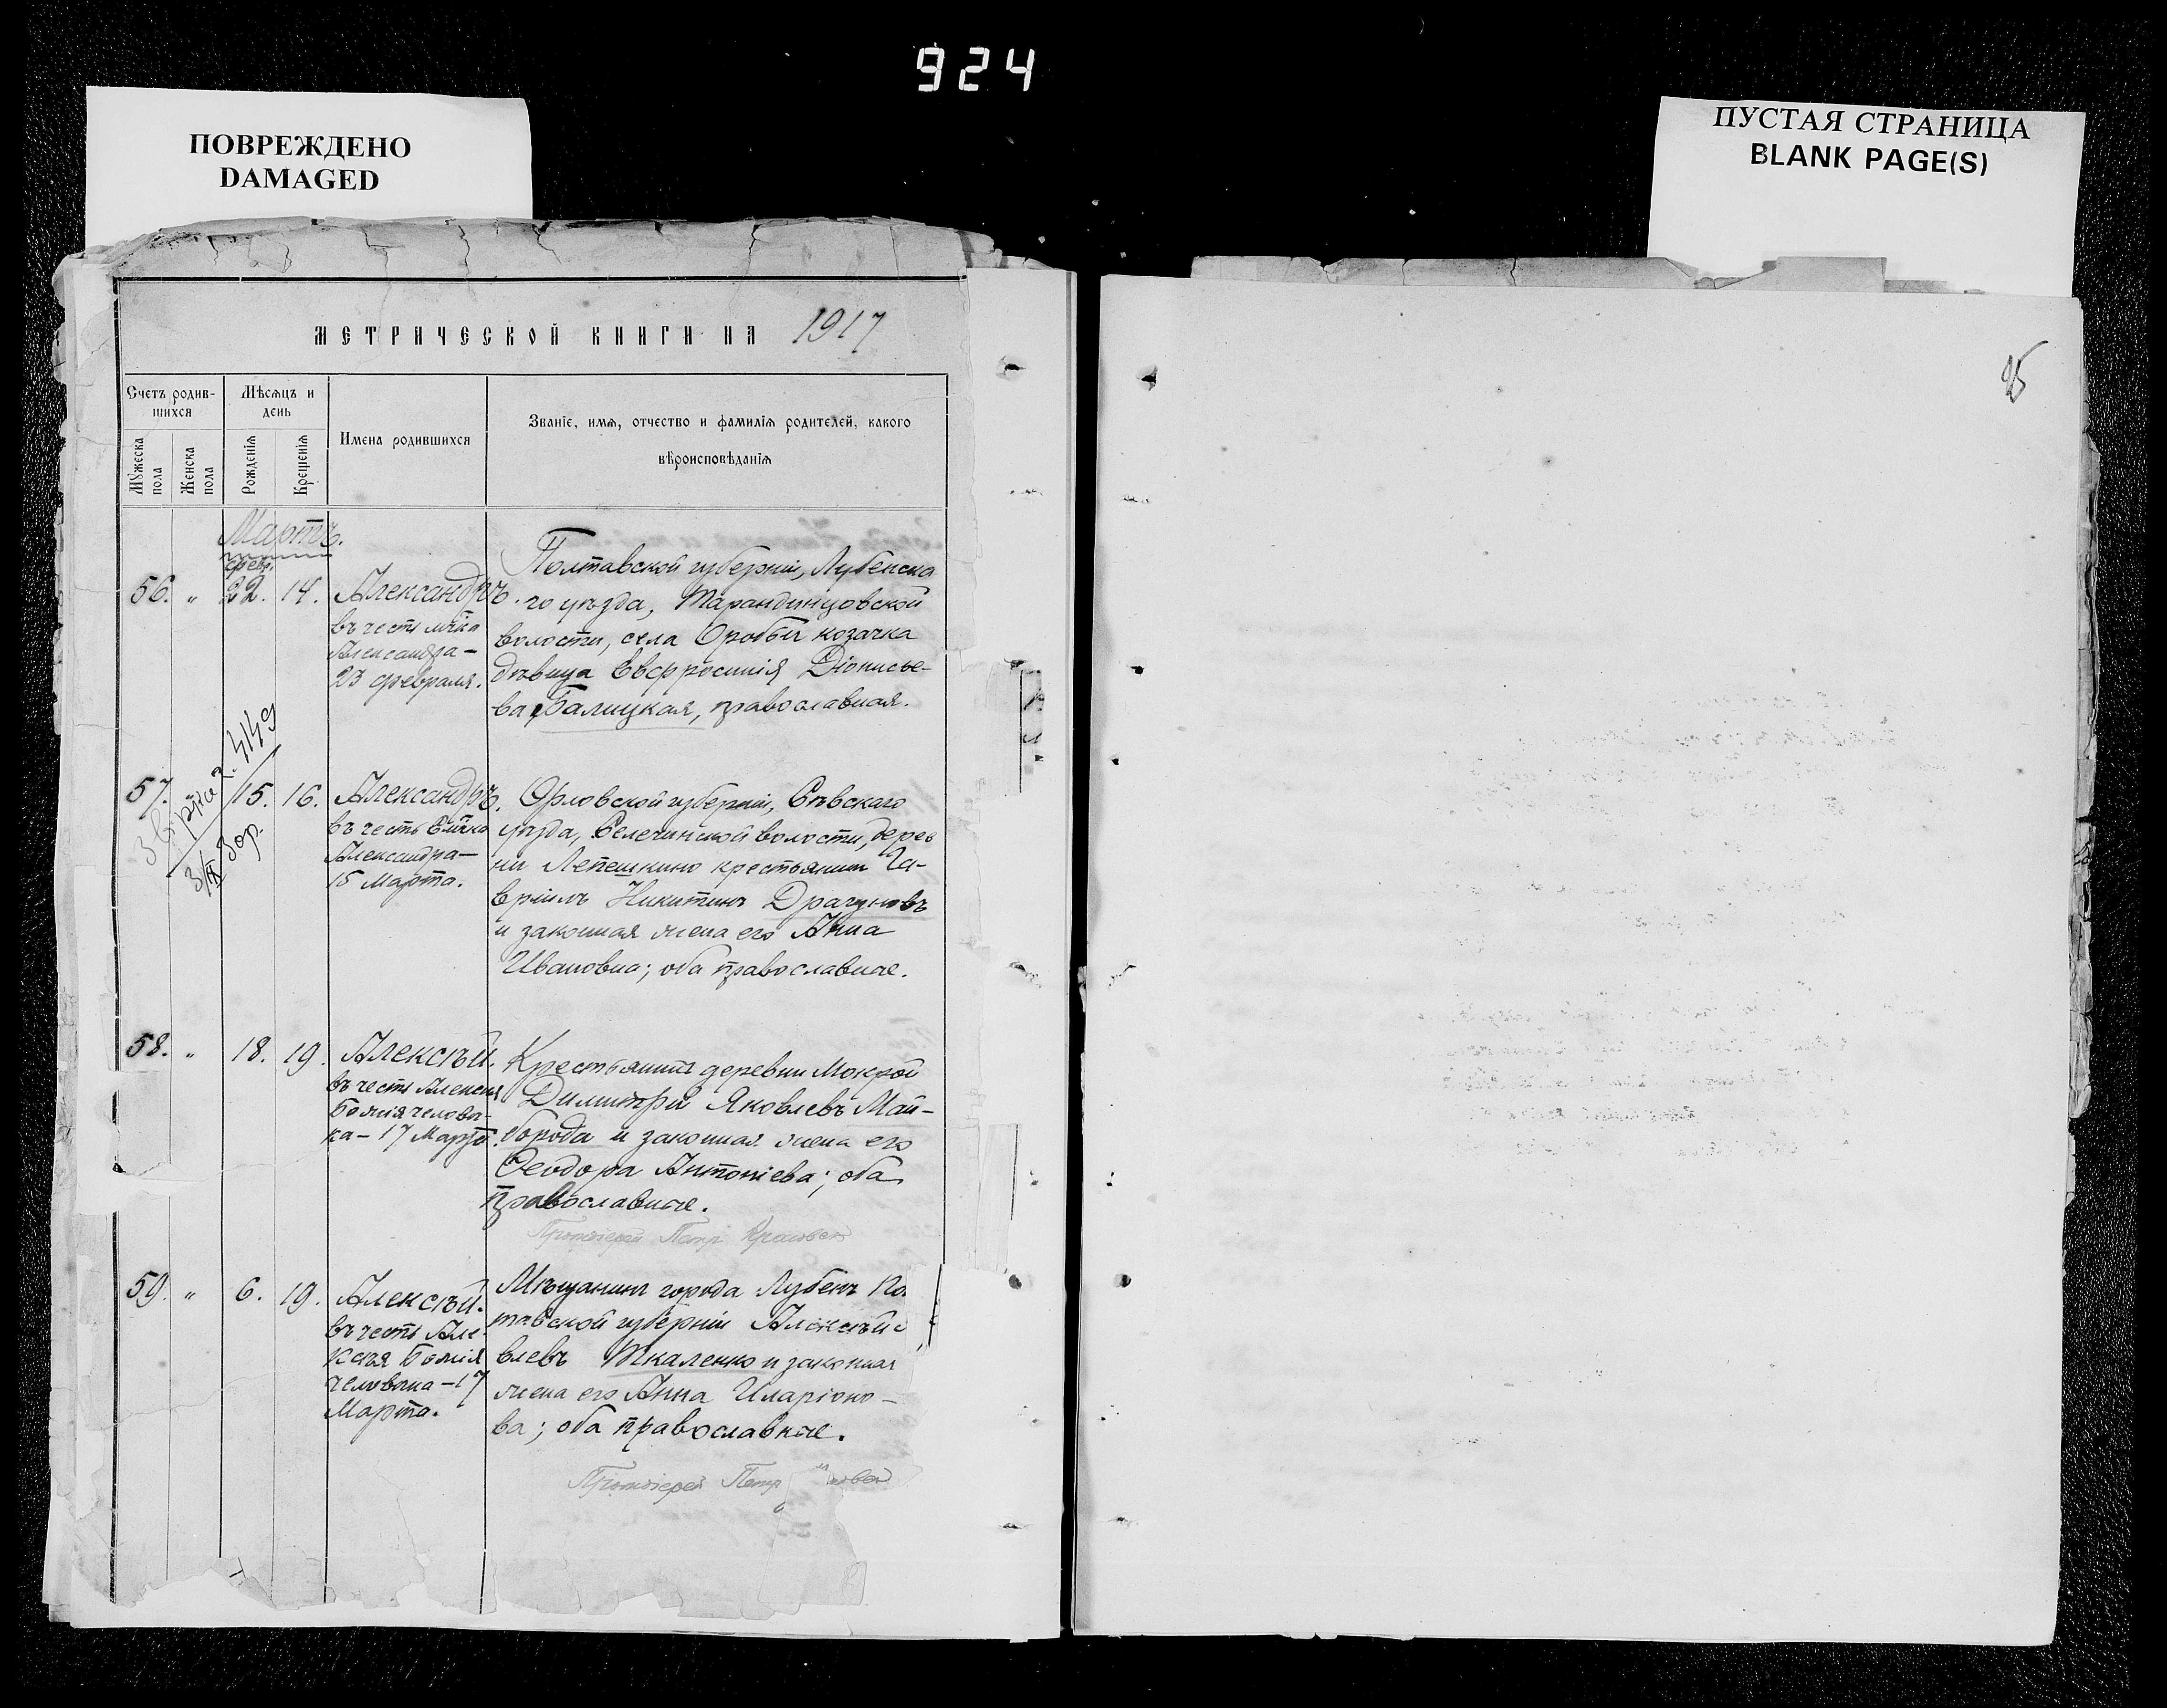 924
ПОВРЕЖДЕНО
DAMAGED
ПУСТАЯ СТРАНИЦА
BLANK PAGE(S)
МЕТРИЧЕСКОЙ КНИГИ НА 1917
Счетъ родив-
шихся
Мѣсяцъ и
день
Имена родившихся
Званіе, имя, отчество и фамилія родителей, какого
вѣроисповѣданія
Мужеска
пола
Женска
пола
Рожденія
Крещенія
Мартъ.
февр.
56. " 22. 14.
Александръ.
въ честь мч҃ка
Александра-
23 февраля.
Полтавской губерніи, Лубенска
го уѣзда, Тарандинцовской
волости, села Оробьи козачка
дѣвица Евфросинія Діонисіе-
ва Балицкая, православная.
57. 15. 16.
4149
3/IX
Александръ.
въ честь
Александра-
15 Марта.
Орловской губерніи, Сѣвскаго
уѣзда, Селечинской волости, дерев
ни Лепешкино крестьянин Га-
вріилъ Никитинъ Драгуновъ
и законная жена его Анна
Ивановна; оба православные.
58. " 18. 19.
Алексѣй.
въ честь Алексія
Божія человѣ-
ка-17 Марта.
Крестьянинъ деревни Мокрой
Димитрій Яковлевъ Май-
борода и законная жена его
Ѳеодора Антоніева; оба
православные.
Протоіерей Петр
59. " 6. 19.
Алексѣй.
въ честь Але-
ксія Божія
человѣка-17
Марта.
Мѣщанинъ города Лубенъ По
тавской губерніи Алексѣй
влевъ Ткаленко и законная
жена его Анна Иларіоно-
ва; оба православные.
Протоіерей Петр
95